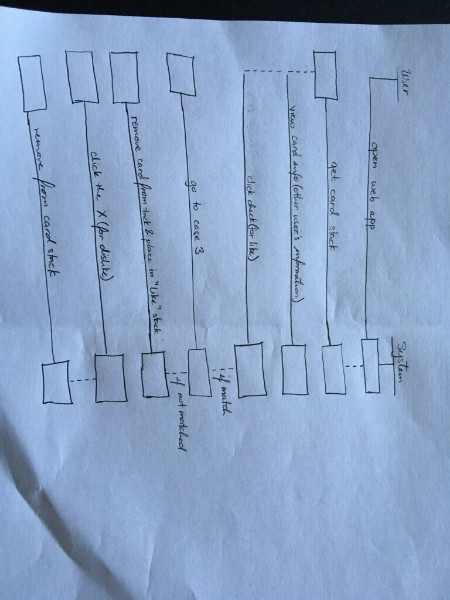 User
System
open web app
get card stack
view card info (other user's information)
click check (for like)
if match
go to case 3
if not matched
remove card from stack & place in "like" stack
click the X (for dislike)
remove from card stack